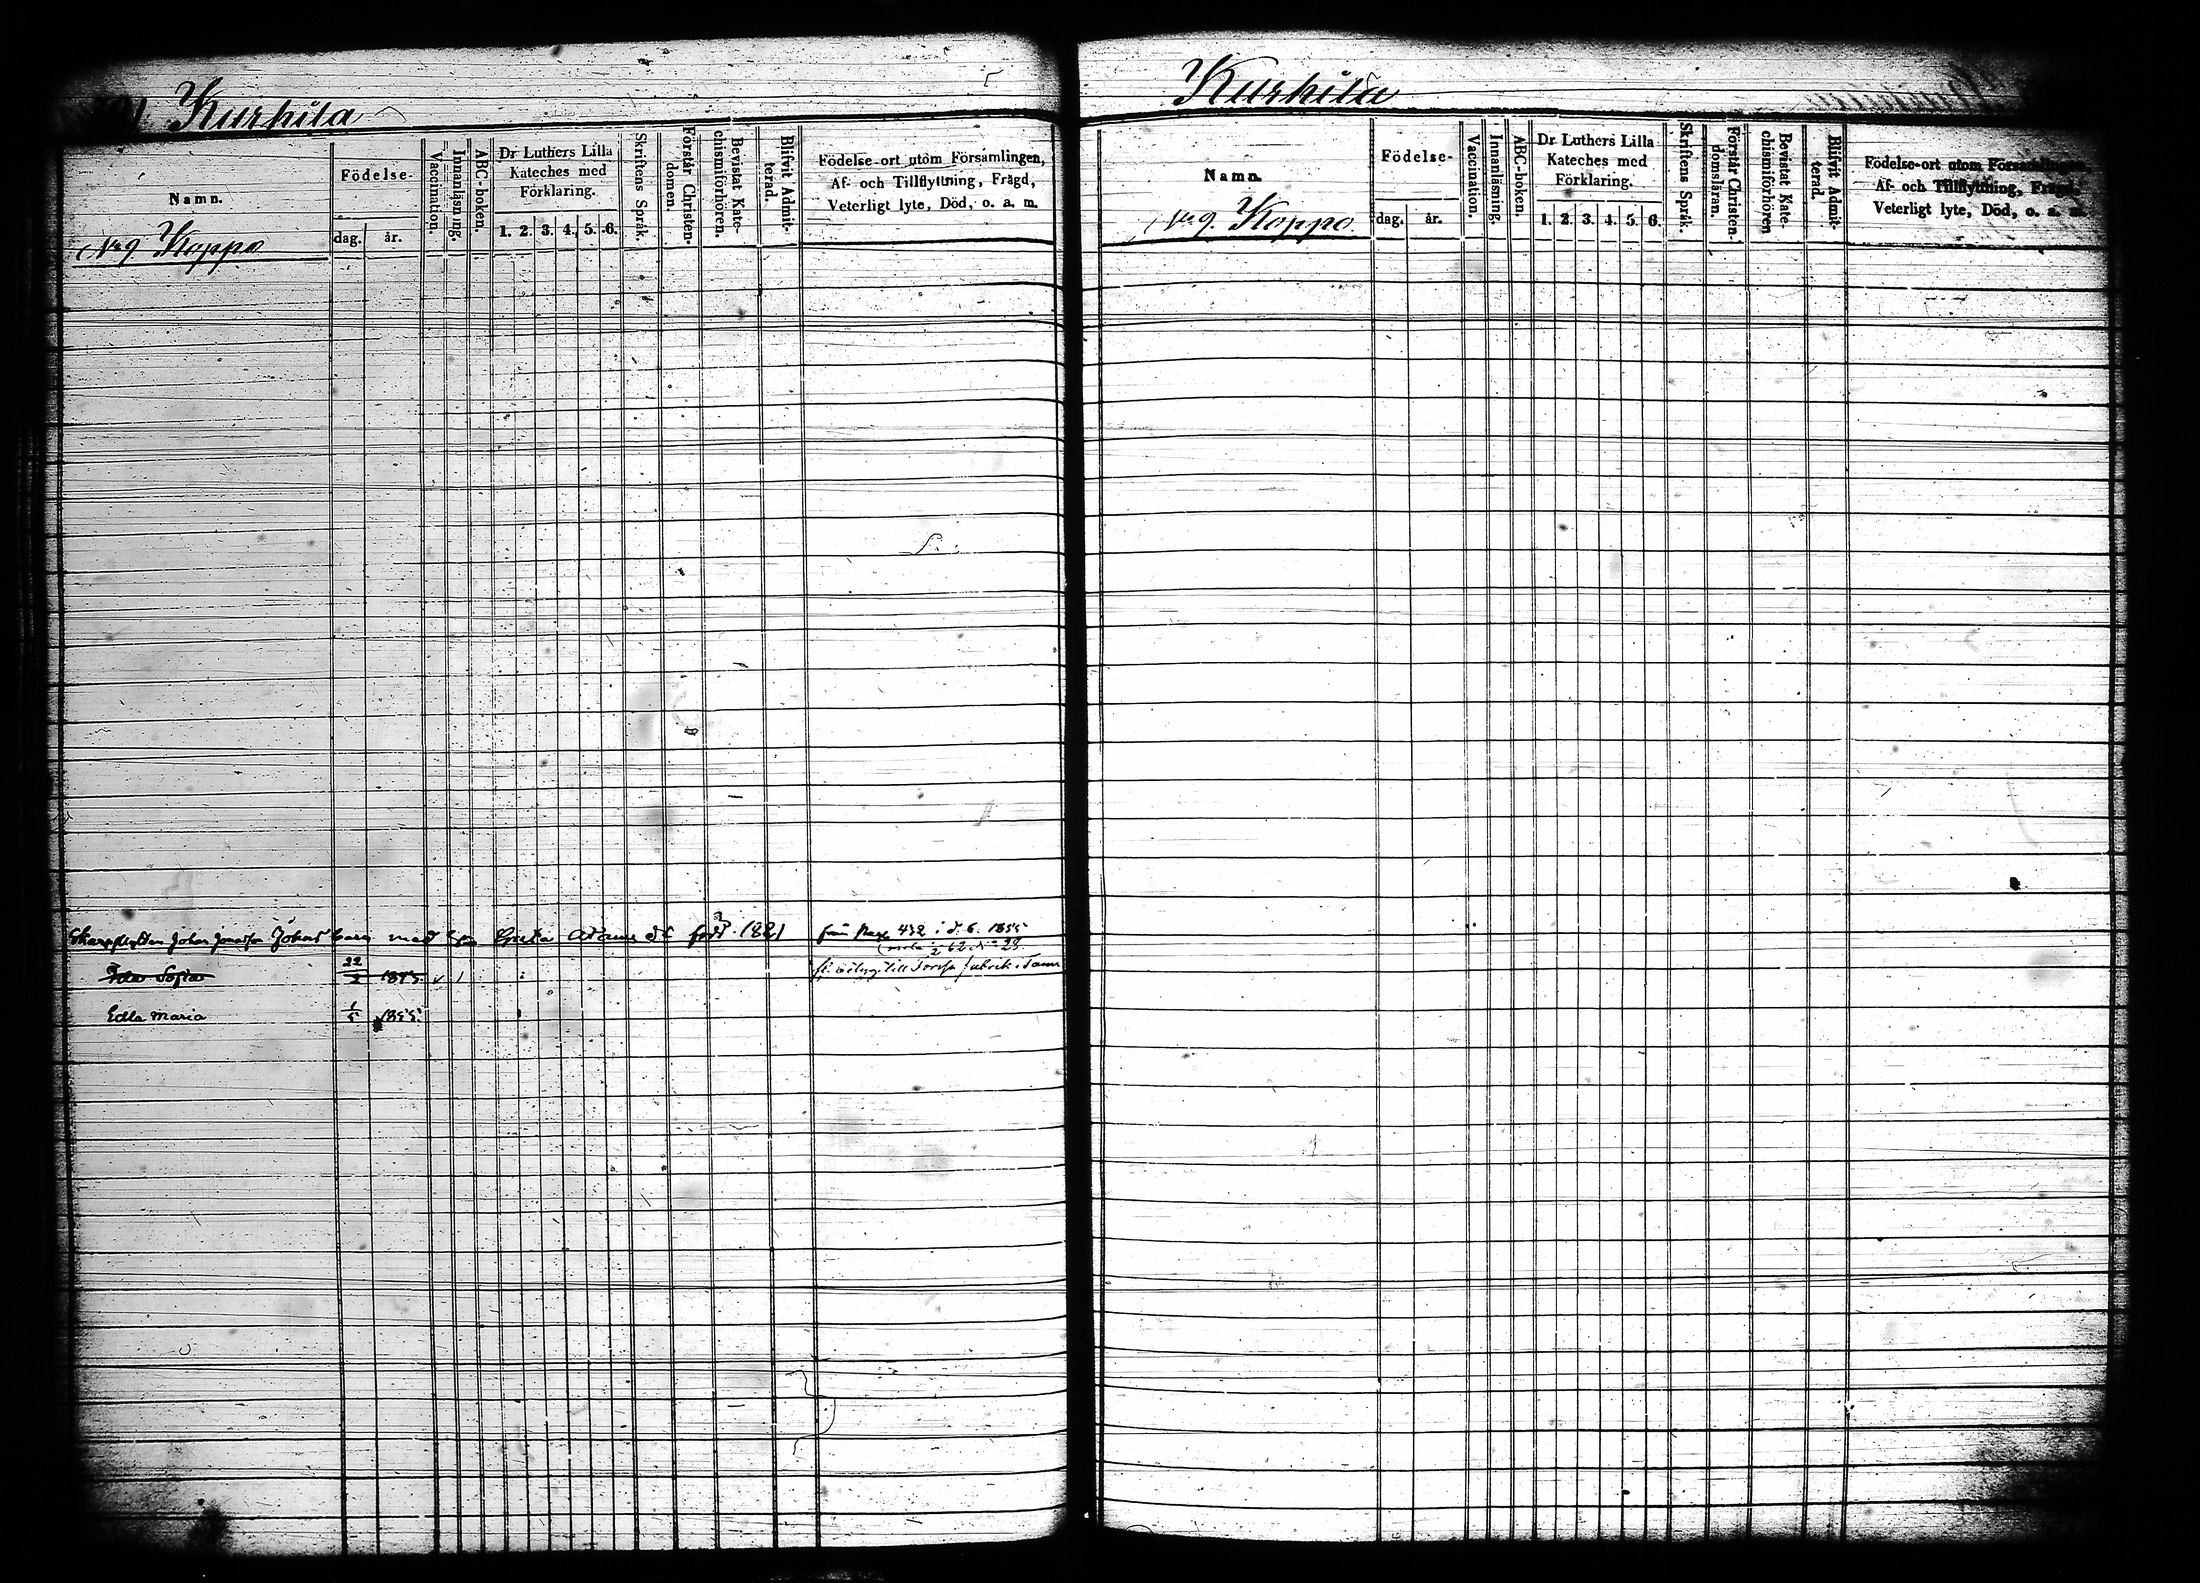 Kurhila
Namn.
Födelse-
dag. år.
Vaccination.
Innanläsning.
ABC-boken.
Dr Luthers Lilla
Kateches med
Förklaring.
1. 2. 3. 4. 5. 6.
Skriftens Språk.
Förstår Christen-
domen.
Bevistat Kate-
chismiförhören.
Blifvit Admit-
terad.
Födelse-ort utom Församlingen,
Af- och Tillflyttning, Frägd,
Veterligt lyte, Död, o. a. m.
N:o 9. Koppo
Skarpskytten Johan
med
Greta Adams dr född 1821
från pag 432 i d. 6. 1855
Ida Sofia 22/2 1845. v 1
till Forssa fabrik i Tam
Edla Maria 1/5 1855.
Kurhila
Namn.
Födelse-
dag. år.
Vaccination.
Innanläsning.
ABC-boken.
Dr Luthers Lilla
Kateches med
Förklaring.
1. 2. 3. 4. 5. 6.
Skriftens Språk.
Förstår Christen-
domsläran.
Bevistat Kate-
chismiförhören
Blifvit Admit-
terad.
Födelse-ort utom Församlingen,
Af- och Tillflyttning, Frägd,
Veterligt lyte, Död, o. a. m.
N:o 9. Koppo